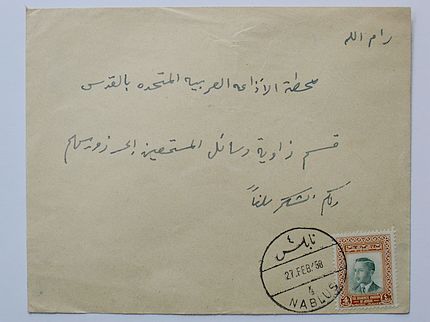 رام الله
محطة الأذاعه العربيه المتحده بالقدس
قسم زاوية رسائل المستمعين
ولكم الشكر سلفاً
نابلس
27.FEB/58
4
NABLUS